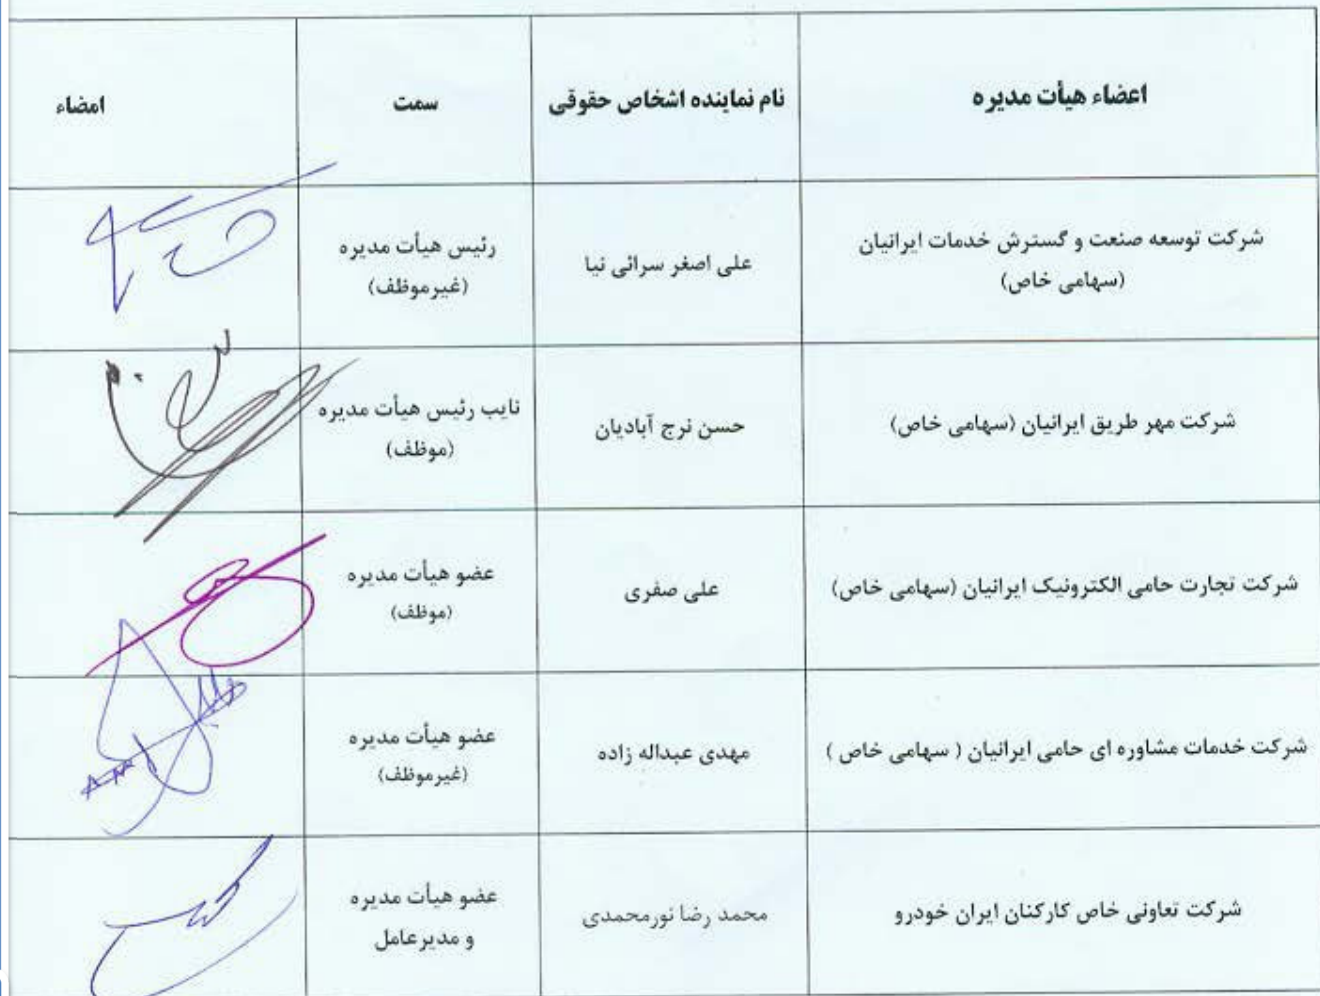 اعضاء هیأت مدیره
نام نماینده اشخاص حقوقی
سمت
امضاء
شرکت توسعه صنعت و گسترش خدمات ایرانیان
(سهامی خاص)
علی اصغر سرائی نیا
رئیس هیأت مدیره
(غیرموظف)
شرکت مهر طریق ایرانیان (سهامی خاص)
حسن نرج آبادیان
نایب رئیس هیأت مدیره
(موظف)
شرکت تجارت حامی الکترونیک ایرانیان (سهامی خاص)
علی صفری
عضو هیأت مدیره
(موظف)
شرکت خدمات مشاوره ای حامی ایرانیان ( سهامی خاص )
مهدی عبداله زاده
عضو هیأت مدیره
(غیرموظف)
شرکت تعاونی خاص کارکنان ایران خودرو
محمد رضا نورمحمدی
عضو هیأت مدیره
و مدیرعامل